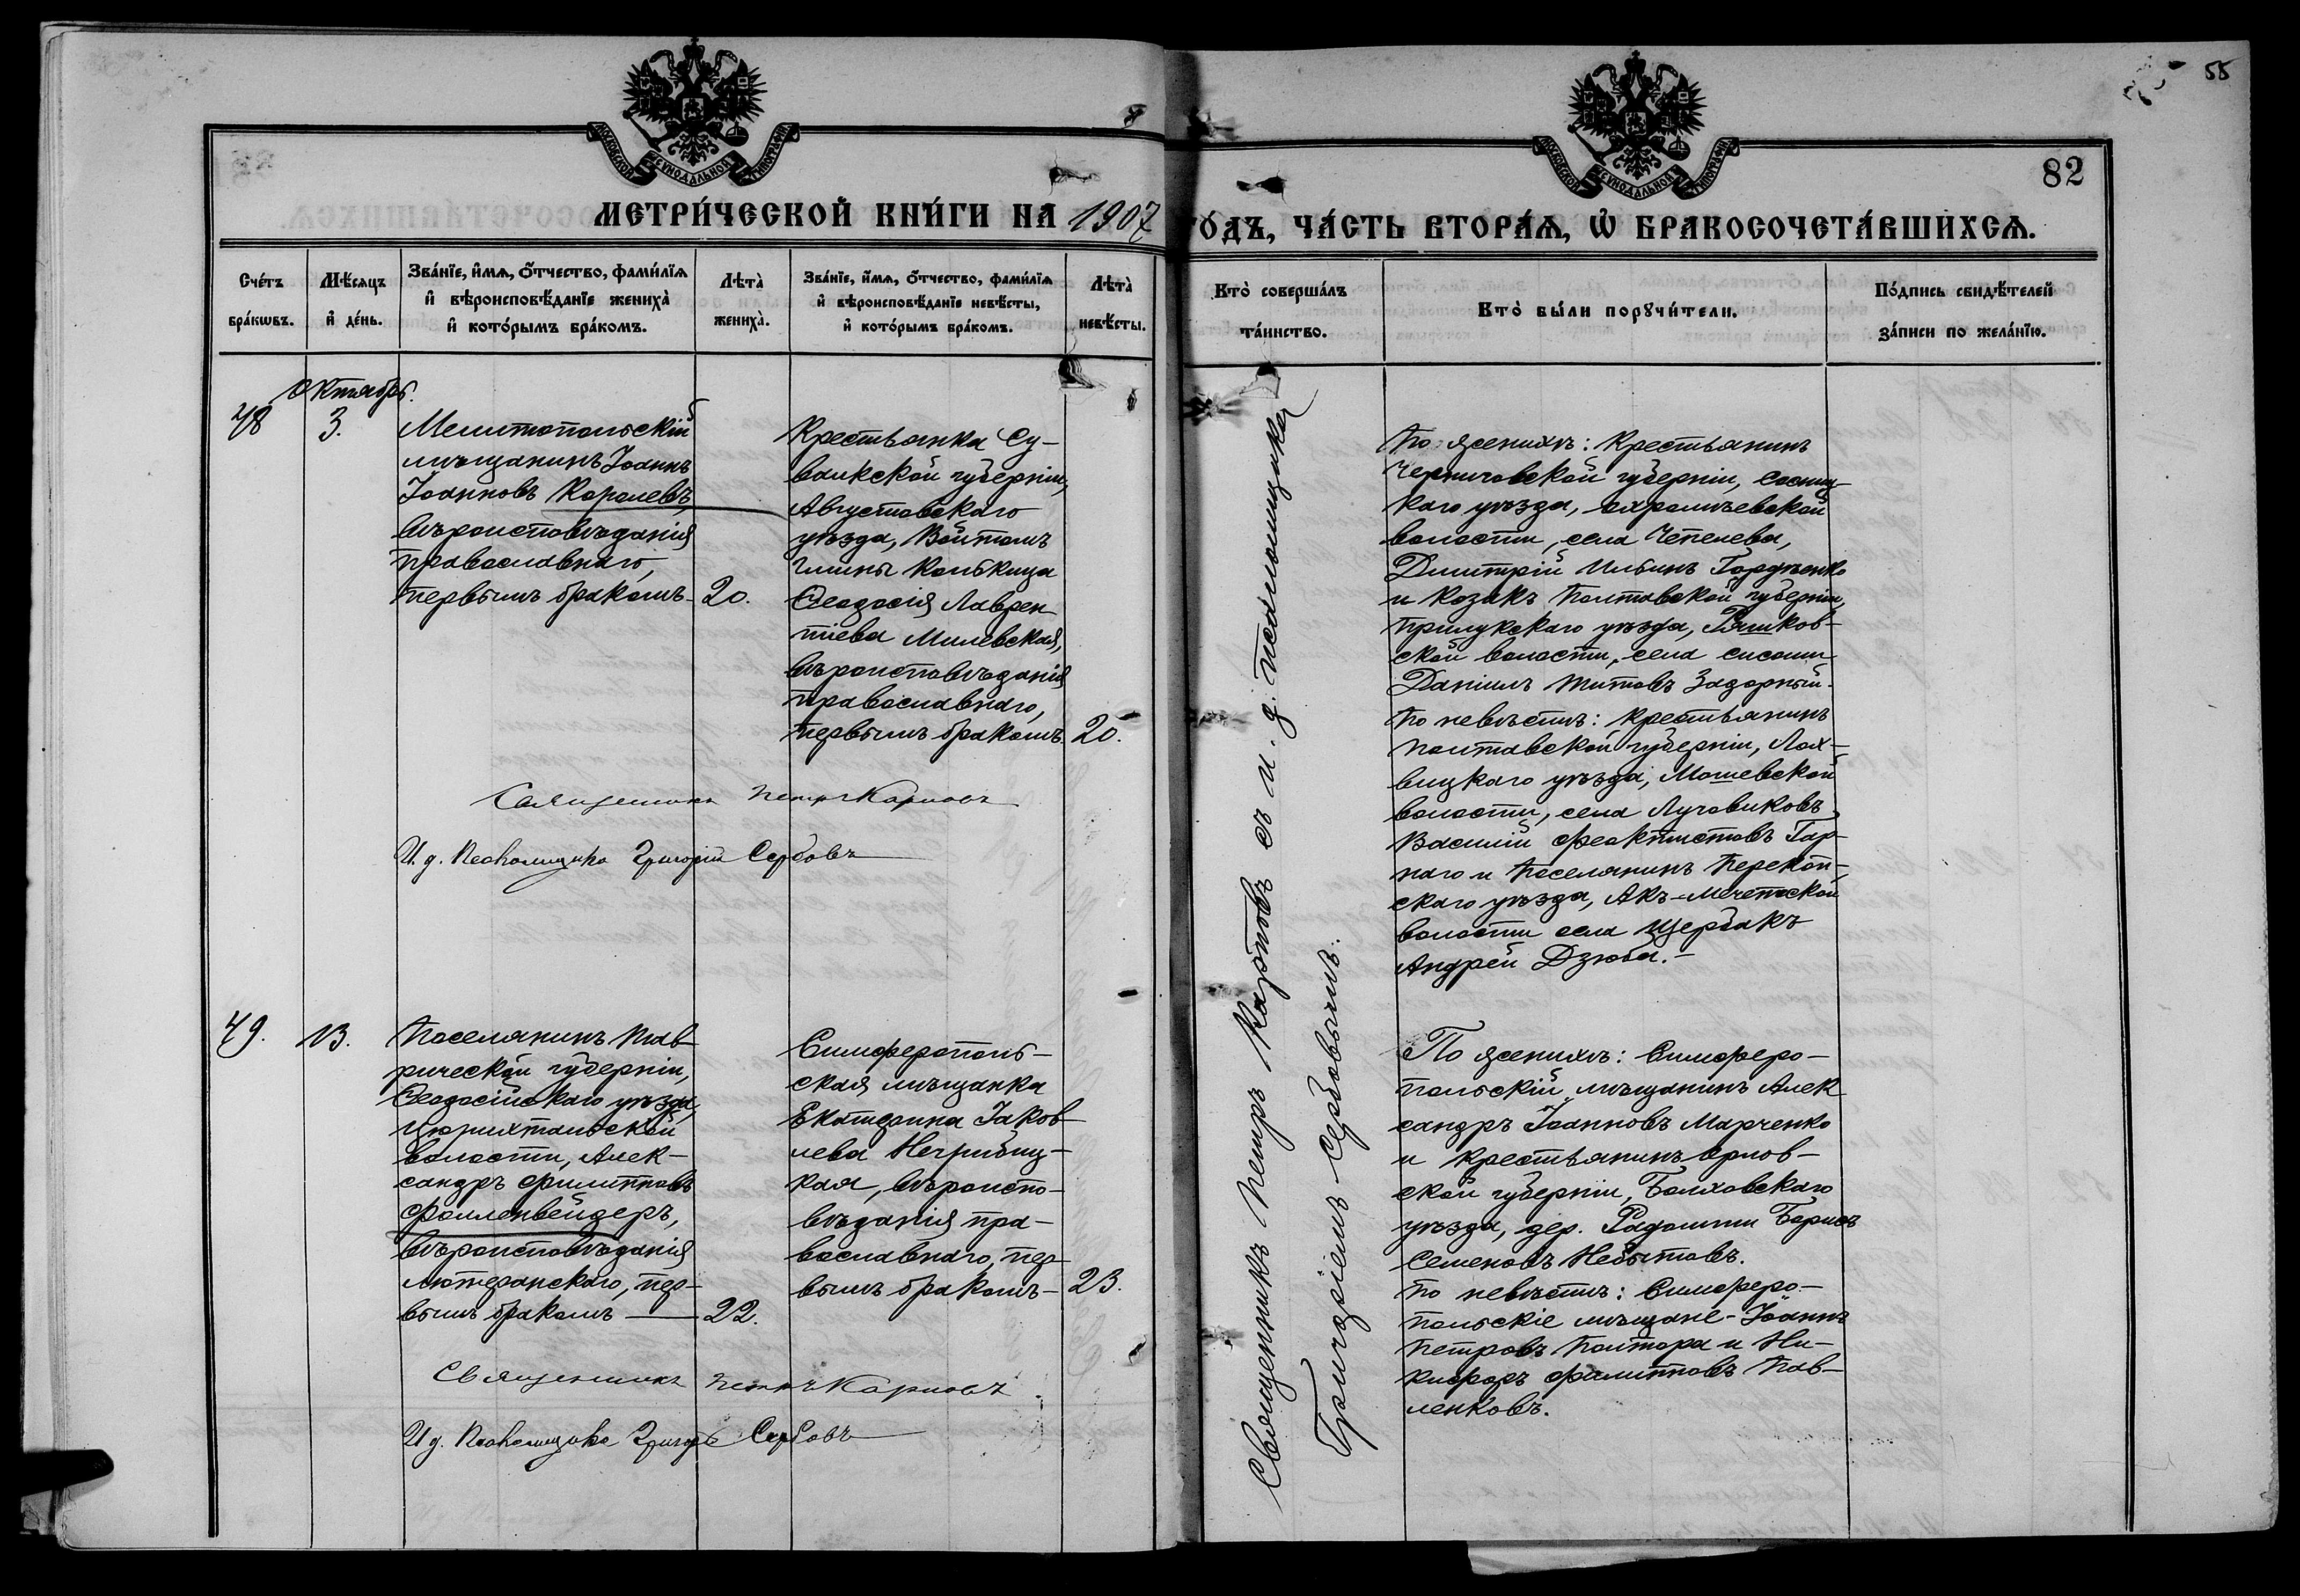 55
82
МОСКОВСКОЙ СѴНОДАЛЬНОЙ ТИПОГРАФІИ
МОСКОВСКОЙ СѴНОДАЛЬНОЙ ТИПОГРАФІИ
МЕТРИ́ЧЕСКОЙ КНИ́ГИ НА 1907
ГО́ДЪ, ЧА́СТЬ ВТОРА́Ѧ, Ѽ БРАКОСОЧЕТА́ВШИХСѦ.
Сче́тъ
бра́кѡвъ.
Мѣ́сяцъ
и҆ де́нь.
Зва́нїе, и҆́мѧ, ѻ҆́тчество, фами́лїѧ
и҆ вѣроисповѣ́данїе жениха̀
и҆ кото́рымъ бра́комъ.
Лѣта̀
жениха̀.
Зва́нїе, и҆́мѧ, ѻ҆́тчество, фами́лїѧ
и҆ вѣроисповѣ́данїе невѣ́сты,
и҆ кото́рымъ бра́комъ.
Лѣта̀
невѣ́сты.
Кто̀ соверша́лъ
та́инство.
Кто̀ бы́ли порꙋчи́тели.
По́дпись свидѣ́телей
за́писи по жела́нїю.
Октябрь.
48
3.
Мелитопольскій
мѣщанинъ Іоаннъ
Іоанновъ Королевъ,
вѣроисповѣданія
православнаго,
первымъ бракомъ-
20.
Крестьянка Су-
валкской губерніи,
Августовскаго
уѣзда, Войтомъ
гмины Кольница
Ѳеодосія Лаврен
тіева Милевская,
вѣроисповѣданія
православнаго,
первымъ бракомъ.
20.
Священникъ Петръ Карповъ
И. д. Псаломщика Григорій Сербовъ
По женихѣ: Крестьянинъ
Черниговской губерніи, Сосниц-
каго уѣзда, Охрамѣевской
волости, села Чепелева,
Димитрій Ильинъ Гордѣенко
и козакъ Полтавской губерніи,
Прилукскаго уѣзда, Ряшков-
ской волости, села
Даніилъ Титовъ Задорный.
По невѣстѣ: крестьянинъ
Полтавской губерніи, Лох-
вицкаго уѣзда, волости, села Лучковиковъ
Василій Феоктистовъ Гар-
наго и Поселянинъ Перекоп-
скаго уѣзда, Акъ-Мечетской
волости села Щербакъ
Андрей Дзюба.-
49.
13.
Поселянинъ Тав-
рической губерніи,
Ѳеодосійскаго уѣзда,
Цюрихтальской
волости, Алек-
сандръ Филипповъ
Фолленвейдеръ,
вѣроисповѣданія
лютеранскаго, пер-
вымъ бракомъ —
22.
Симферополь-
ская мѣщанка
Екатерина Іаков-
лева Негрибиц-
кая, вѣроиспо-
вѣданія пра-
вославнаго, пер-
вымъ бракомъ-
23.
Священникъ Петръ Карповъ.
И д. Псаломщика Григорій Сербовъ
По женихѣ: Симферо-
польскій мѣщанинъ Алек
сандръ Іоанновъ Марченко
и крестьянинъ Орлов-
ской губерніи, Болховскаго
уѣзда, дер. Радомки Борисъ
Семеновъ Небытовъ.
По невѣстѣ: Симферо-
польскіе мѣщане-Іоаннъ
Петровъ Полтора и Ни-
кифоръ Филипповъ Пав-
ленковъ.
Священникъ Петръ Карповъ съ и. д. псаломщика
Григоріемъ Сербовымъ.